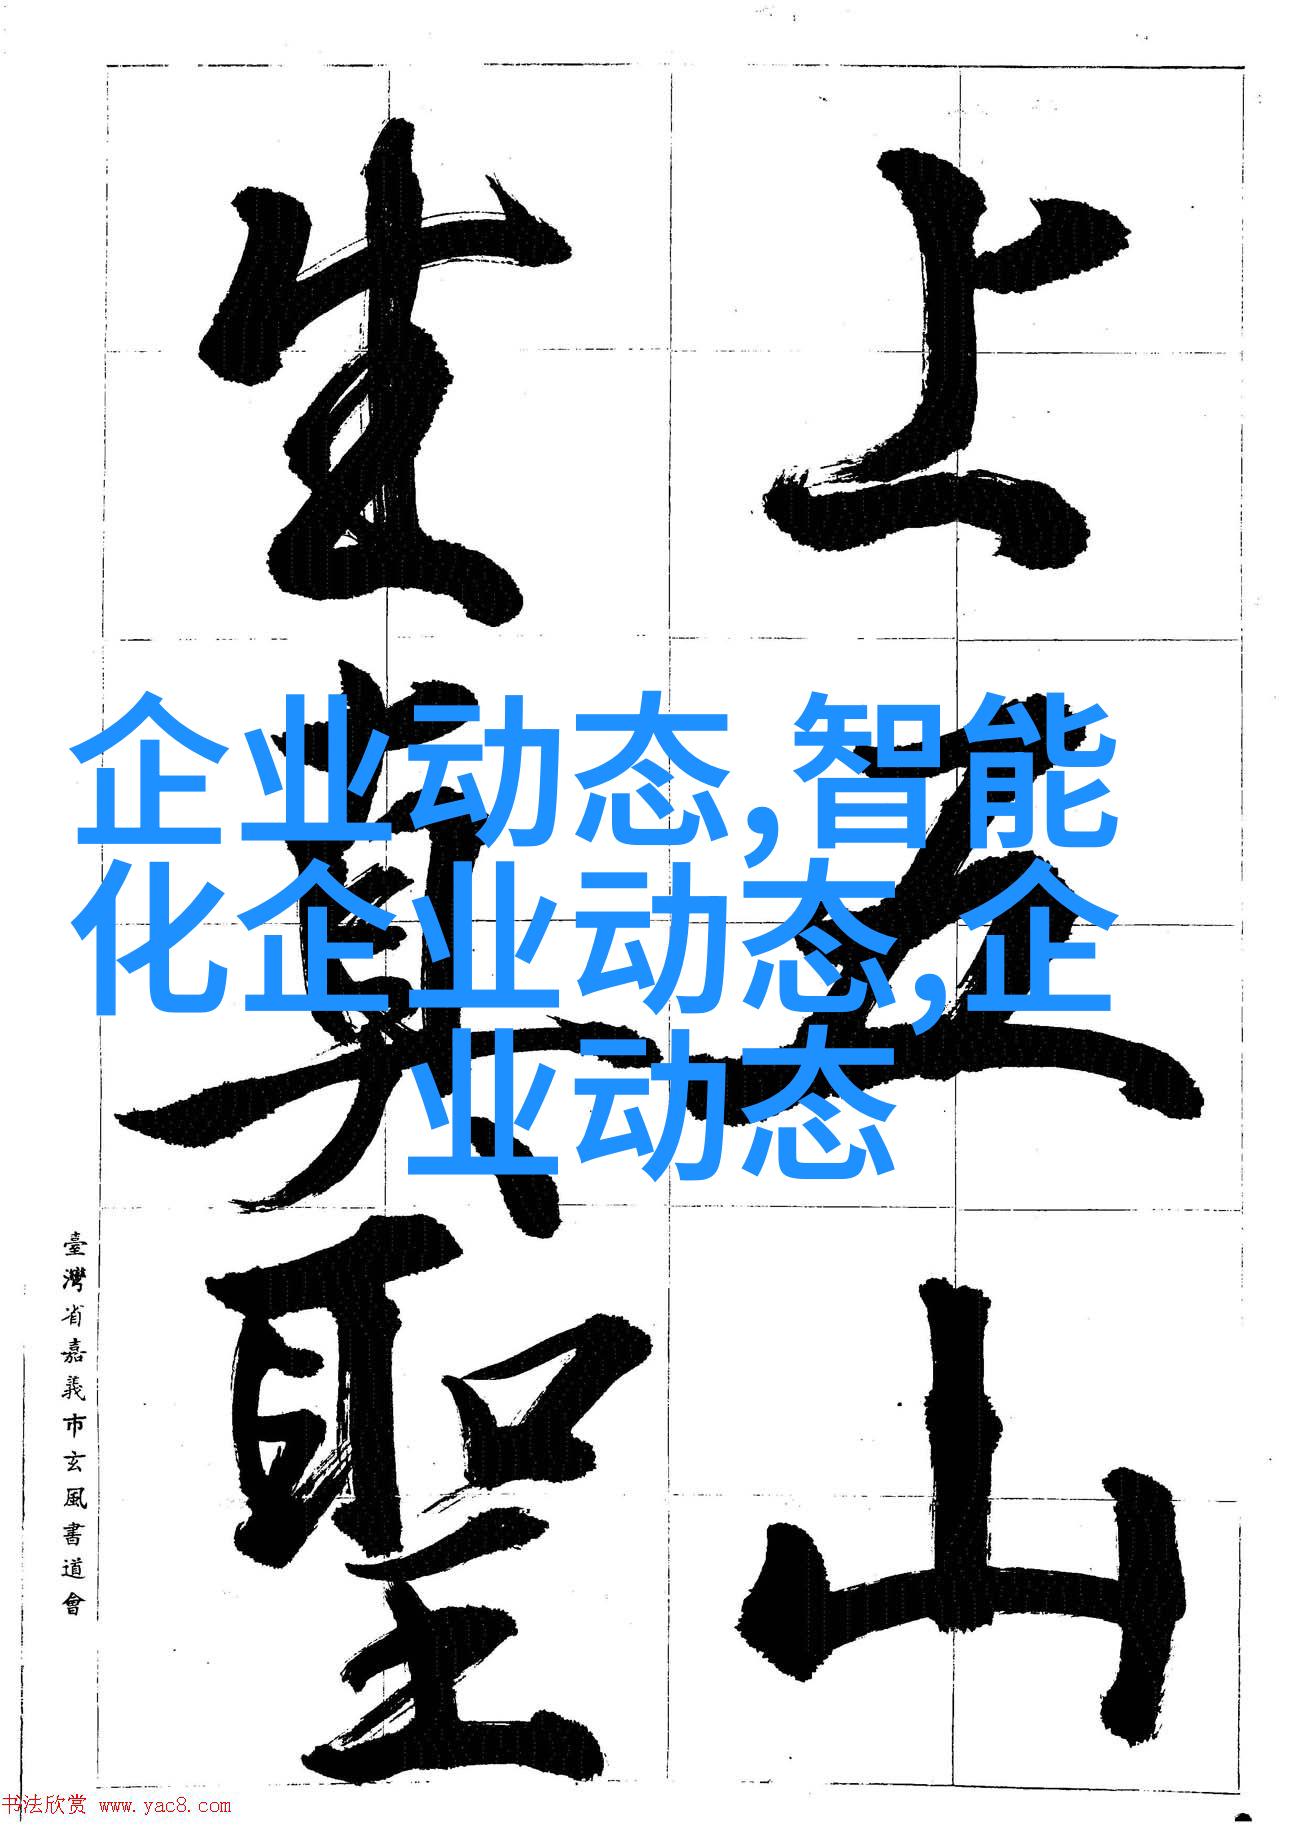 上五山
生真聖
企业动态,智能
化企业动态,企
业动态
臺灣省嘉義市玄風書道會
书法欣赏 www.yac8.com